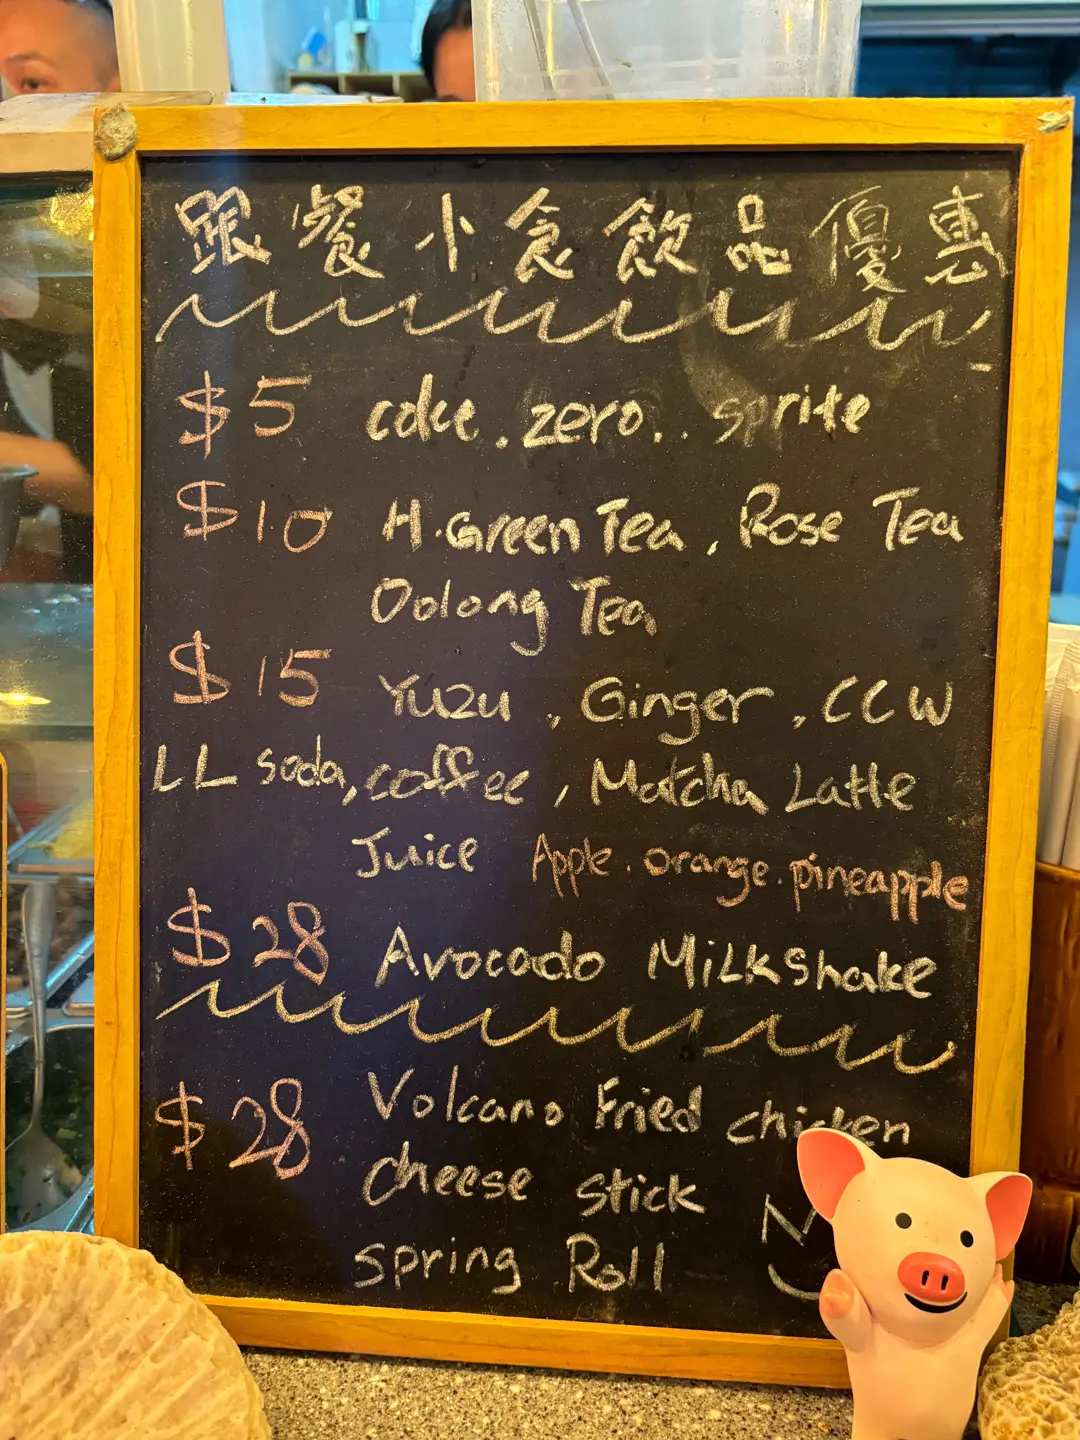 跟餐小食飲品優惠
$5 coke . zero . . sprite
$10 H.Green Tea , Rose Tea
Oolong Tea
$15 Yuzu , Ginger , CCW
LL soda, coffee , Matcha Latte
Juice Apple . orange . pineapple
$28 Avocado Milkshake
$28 Volcano Fried chicken
cheese stick
Spring Roll